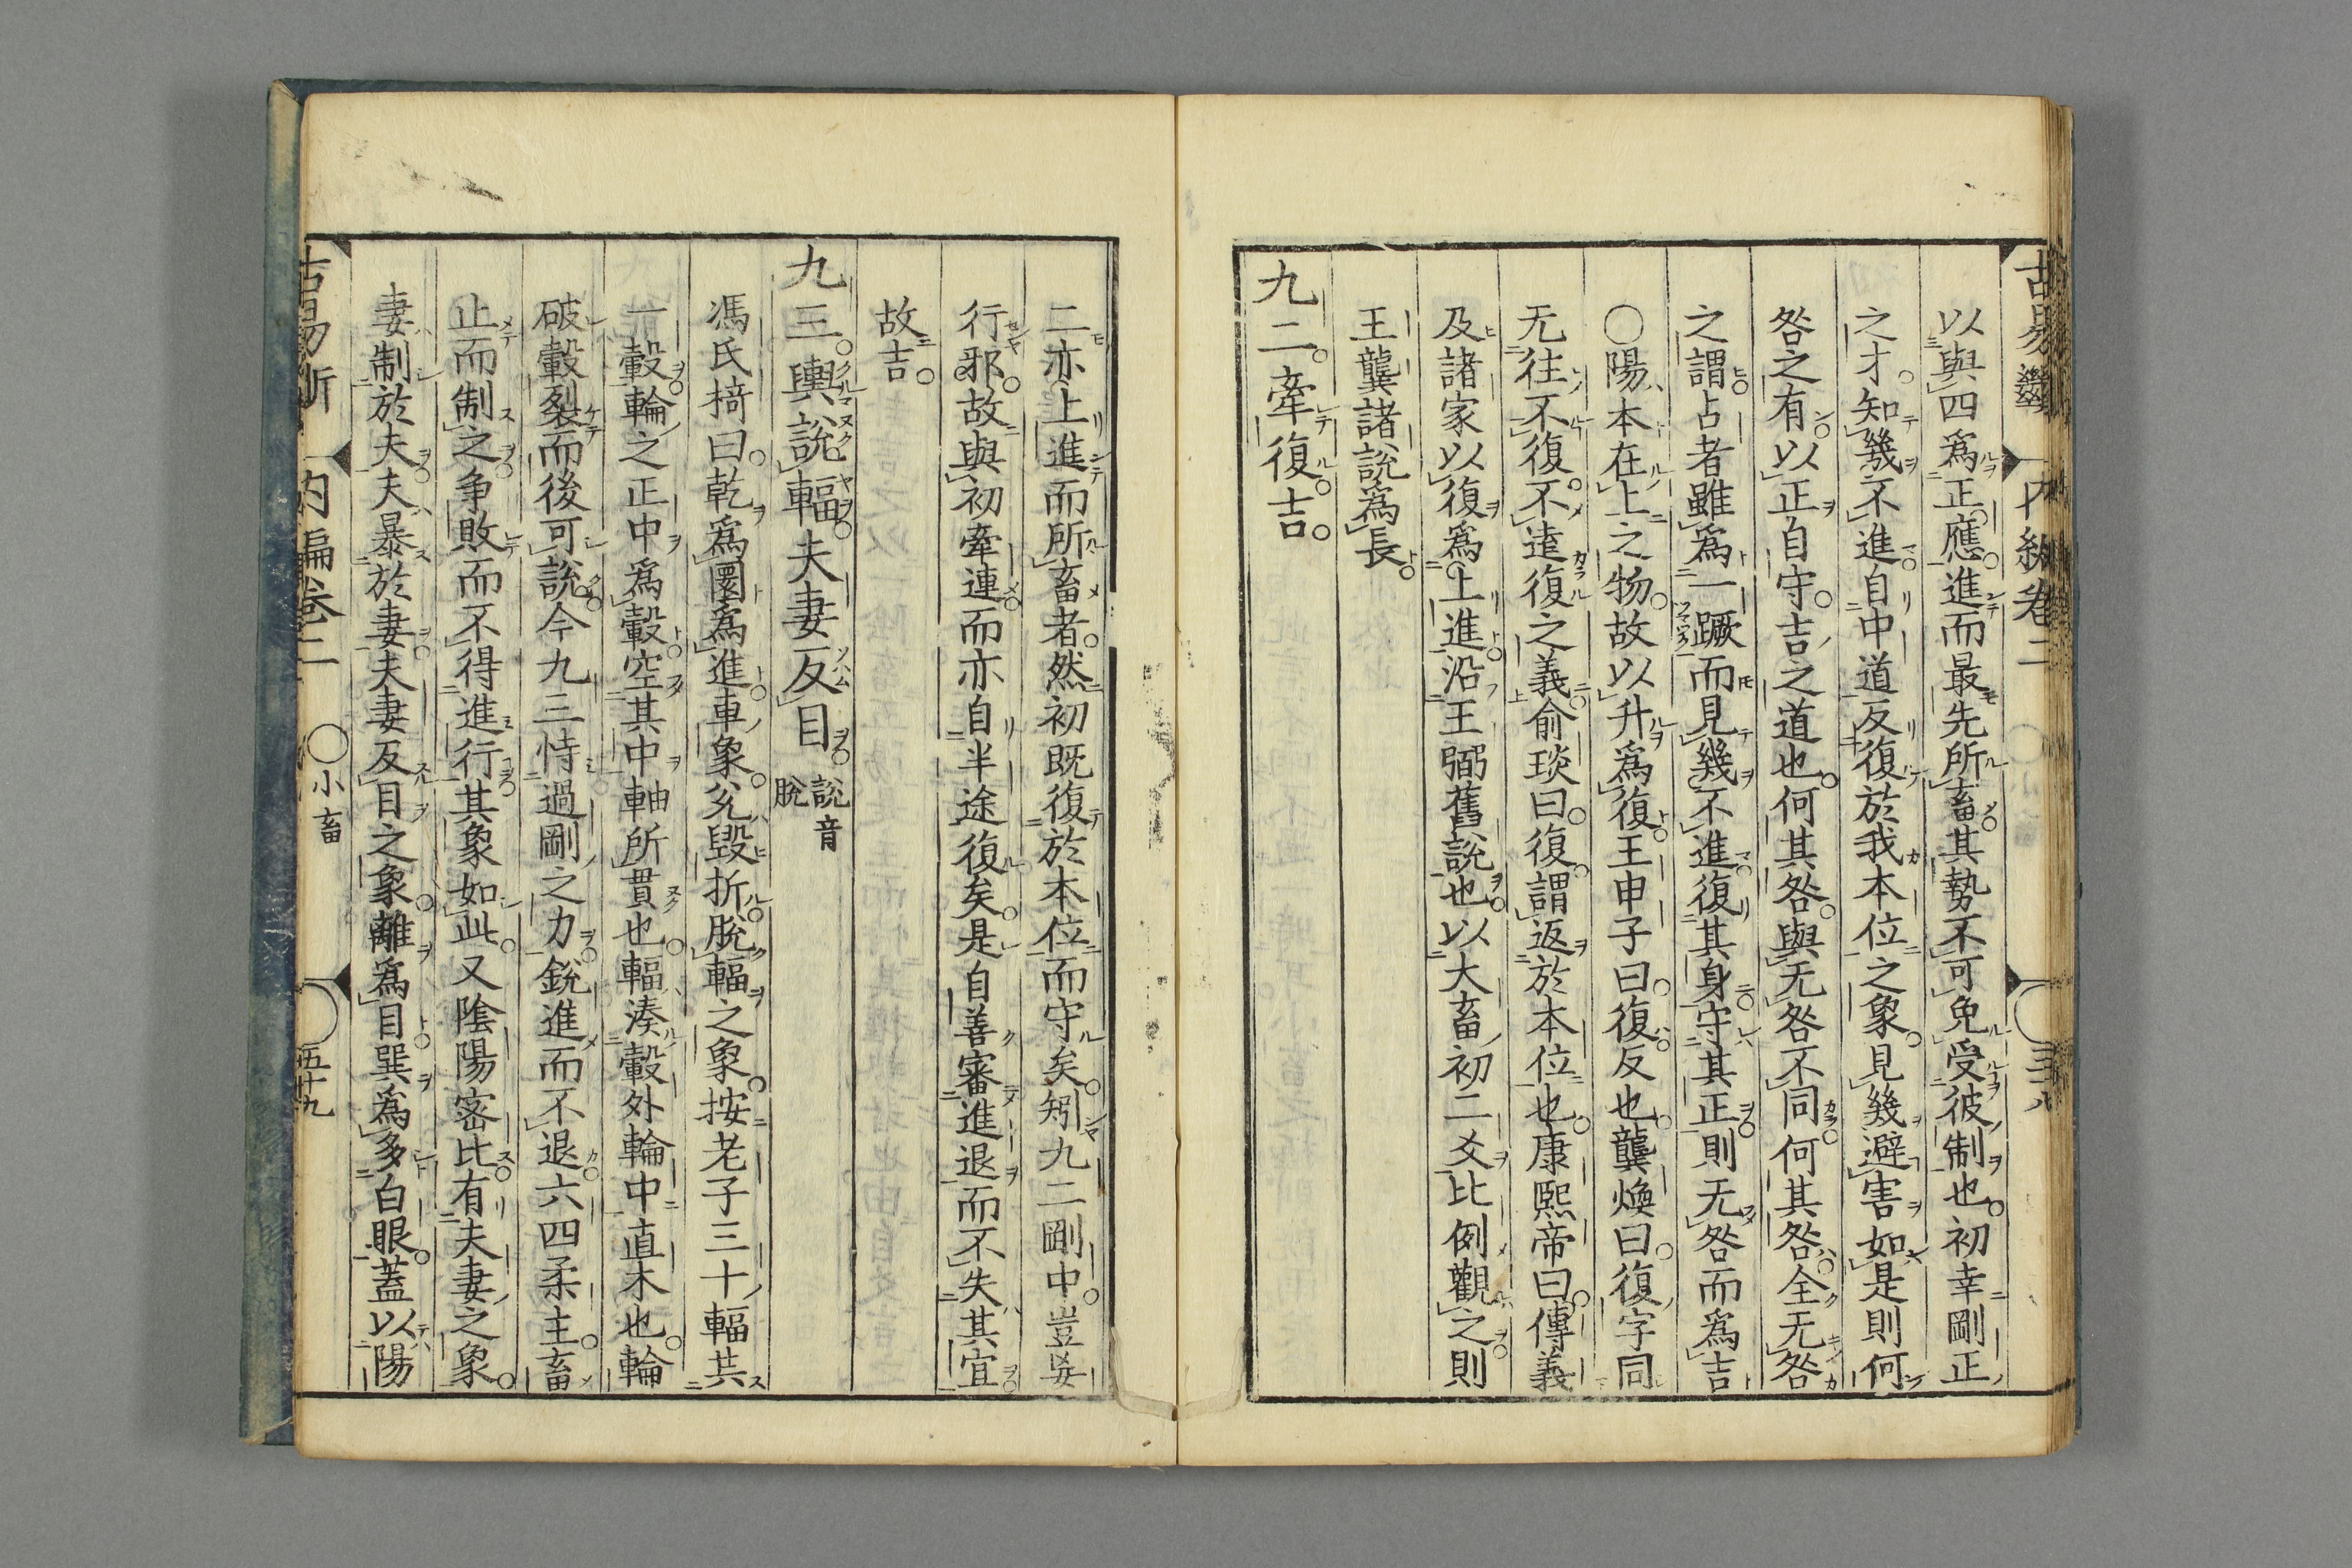 以與四爲正應進而最先所畜其勢不可免受彼制也初幸剛正
之才知幾不進自中道反復於我本位之象見幾避害如是則何
咎之有以正自守吉之道也何其咎與无咎不同何其咎全无咎
之謂占者雖爲一蹶而見幾不進復其身守其正則无咎而爲吉
○陽本在上之物故以升爲復王申子曰復反也龔煥曰復字同
无往不復不遠復之義俞琰曰復謂返於本位也康熙帝曰傳義
及諸家以復爲上進沿王弼舊說也以大畜初二爻比例觀之則
王龔諸說爲長
九二牽復吉
二亦上進而所畜者然初既復於本位而守矣矧九二剛中豈妄
行邪故與初牽連而亦自半途復矣是自善審進退而不失其宜
故吉
九三輿說輻夫妻反目 說音脫
馮氏椅曰乾爲圜爲進車象兊毀折脫輻之象按老子三十輻共
一轂輪之正中爲轂空其中軸所貫也輻湊轂外輪中直木也輪
破轂裂而後可說今九三恃過剛之力銳進而不退六四柔主畜
止而制之爭敗而不得進行其象如此又陰陽密比有夫妻之象
妻制於夫夫暴於妻夫妻反目之象離爲目巽爲多白眼蓋以陽
古易斷 內編卷二 ○小畜 五十九